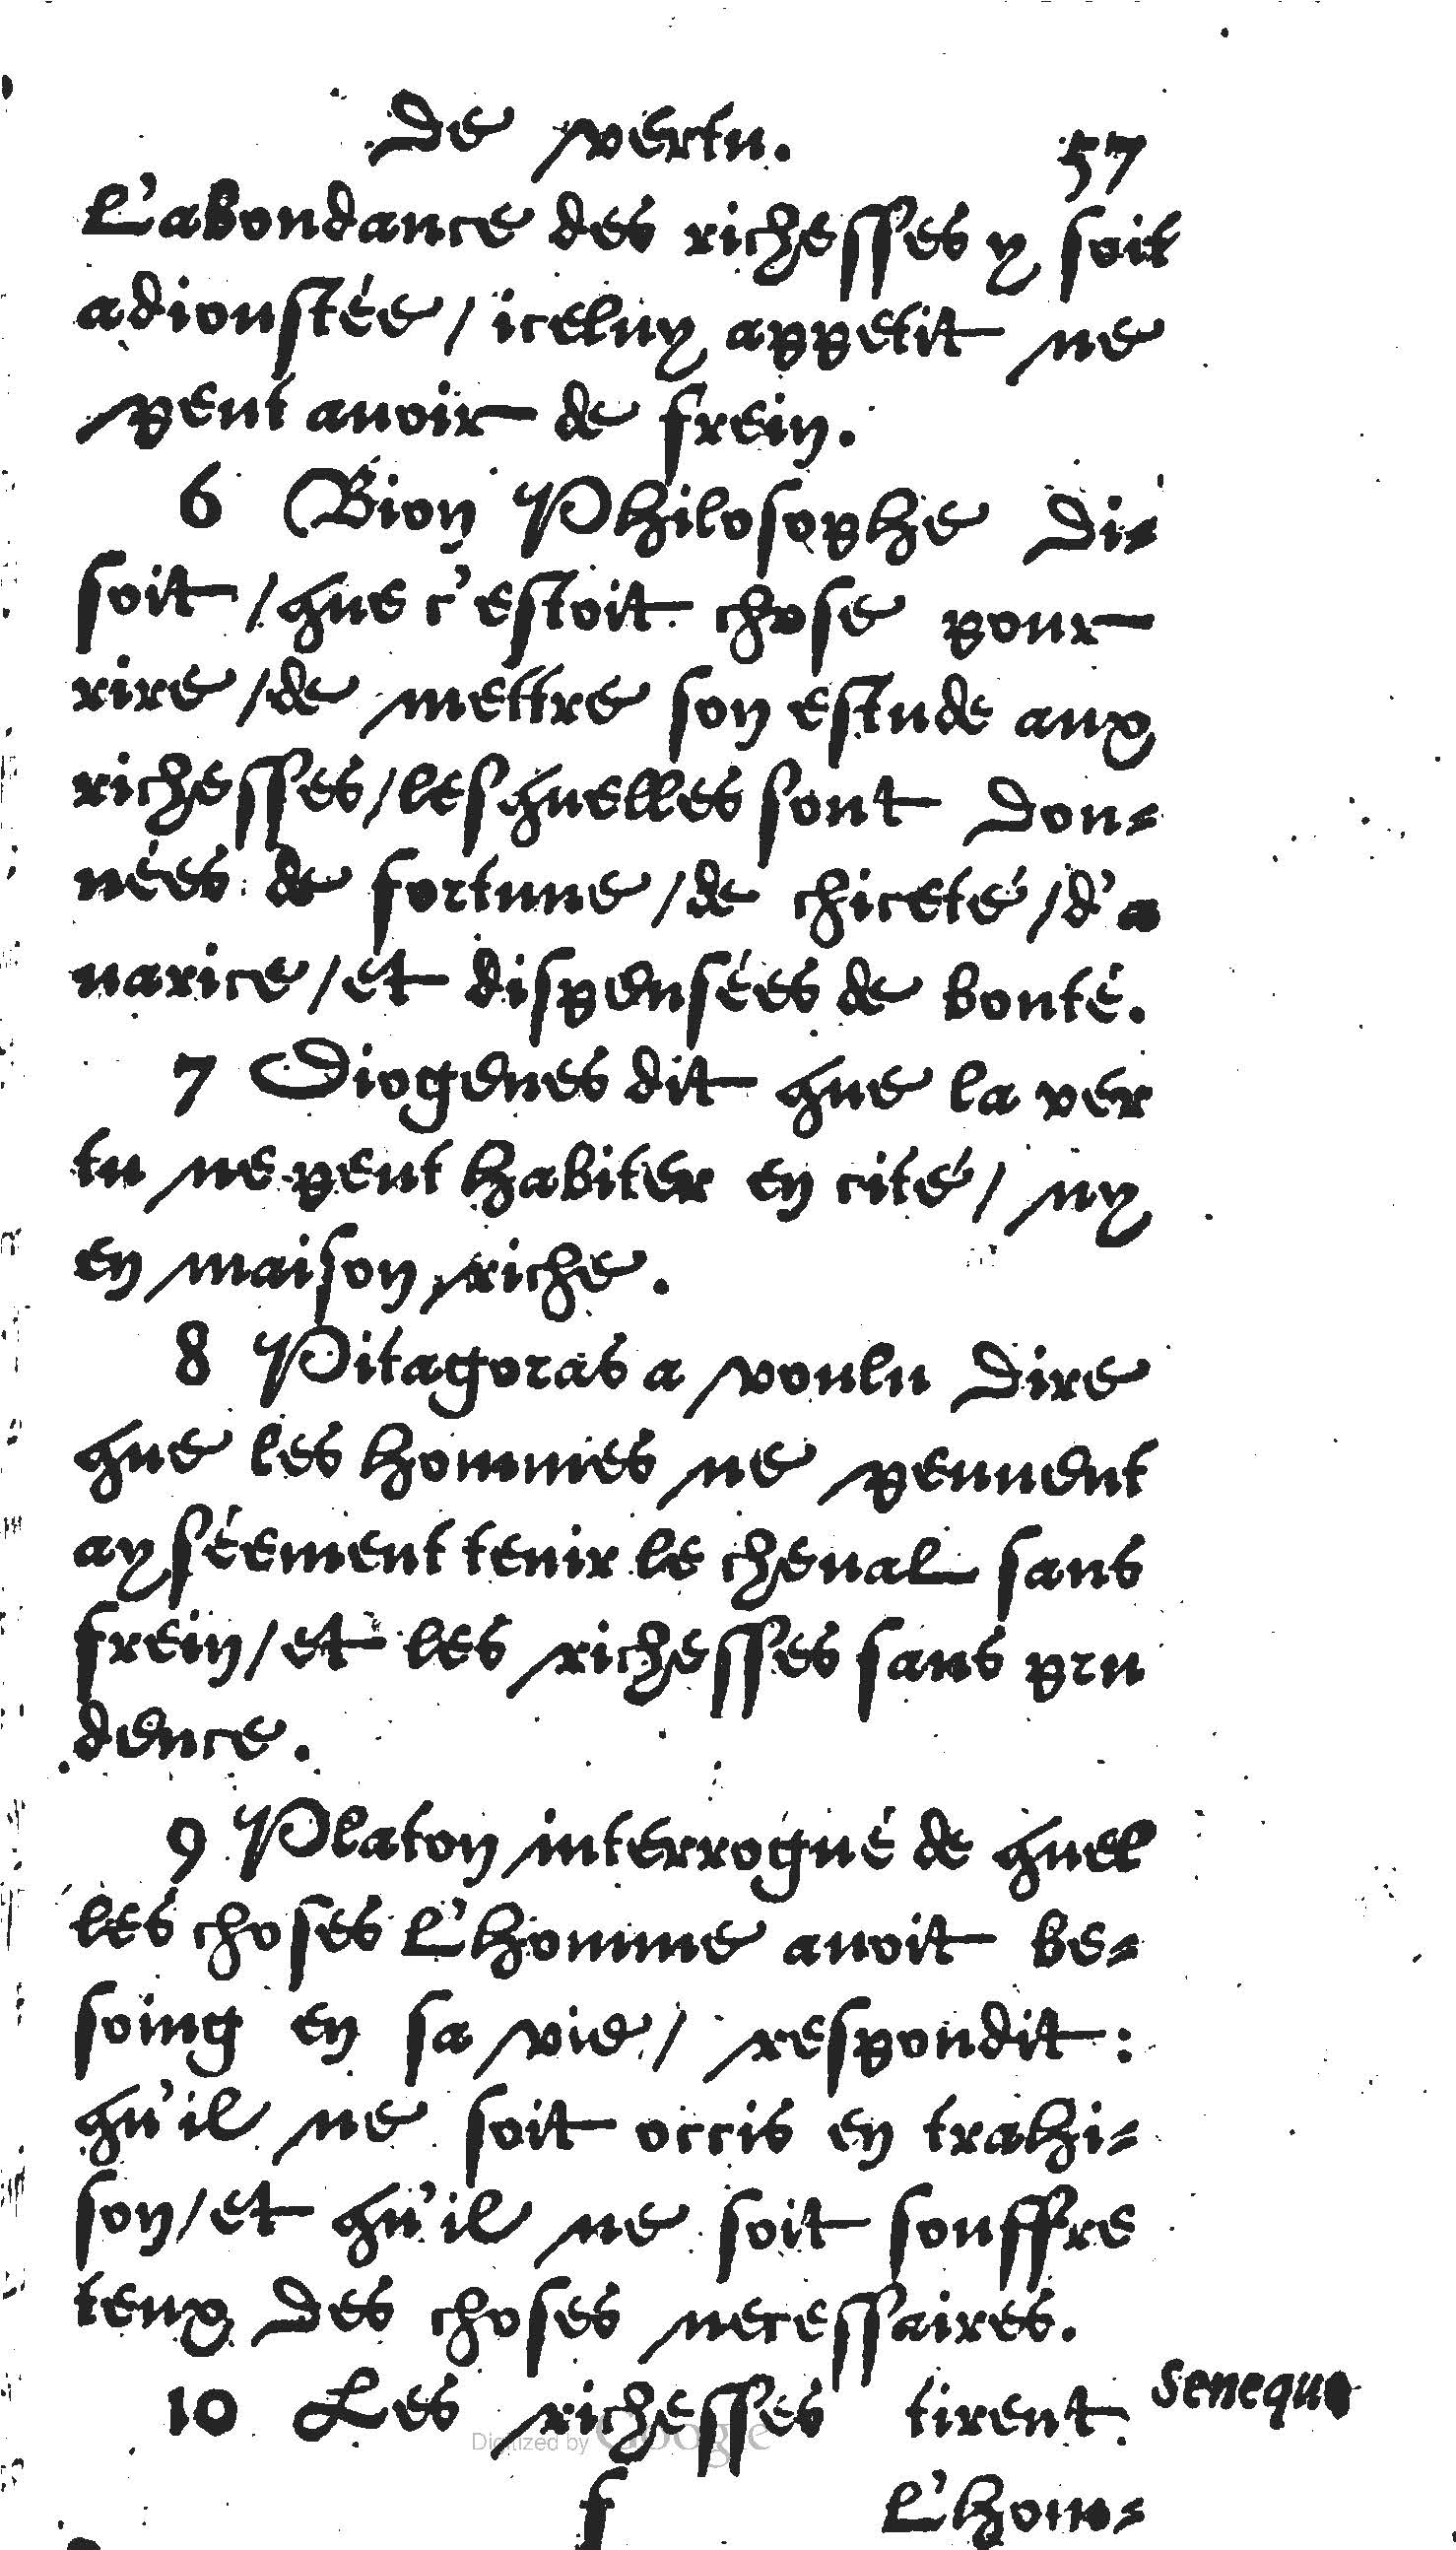 de vertu. 57
L'abondance des richesses y soit
adioustée / iceluy appetit ne
peut auoir de frein.
6 Bion Philosophe di-
soit / que c'estoit chose pour
rire / de mettre son estude aux
richesses / lesquelles sont don-
nées de fortune / de chiceté / d'a
uarice / et dispensées de bonté.
7 Diogenes dit que la ver
tu ne peut habiter en cité / ny
en maison riche.
8 Pitagoras a voulu dire
que les hommes ne peuuent
ayséement tenir le cheual sans
frein / et les richesses sans pru
dence.
9 Platon interrogué de quel
les choses l'homme auoit be-
soing en sa vie / respondit :
qu'il ne soit occis en trahi-
son / et qu'il ne soit souffre
teux des choses necessaires.
10 Les richesses tirent
Seneque
Digitized by Google
f L'hom-